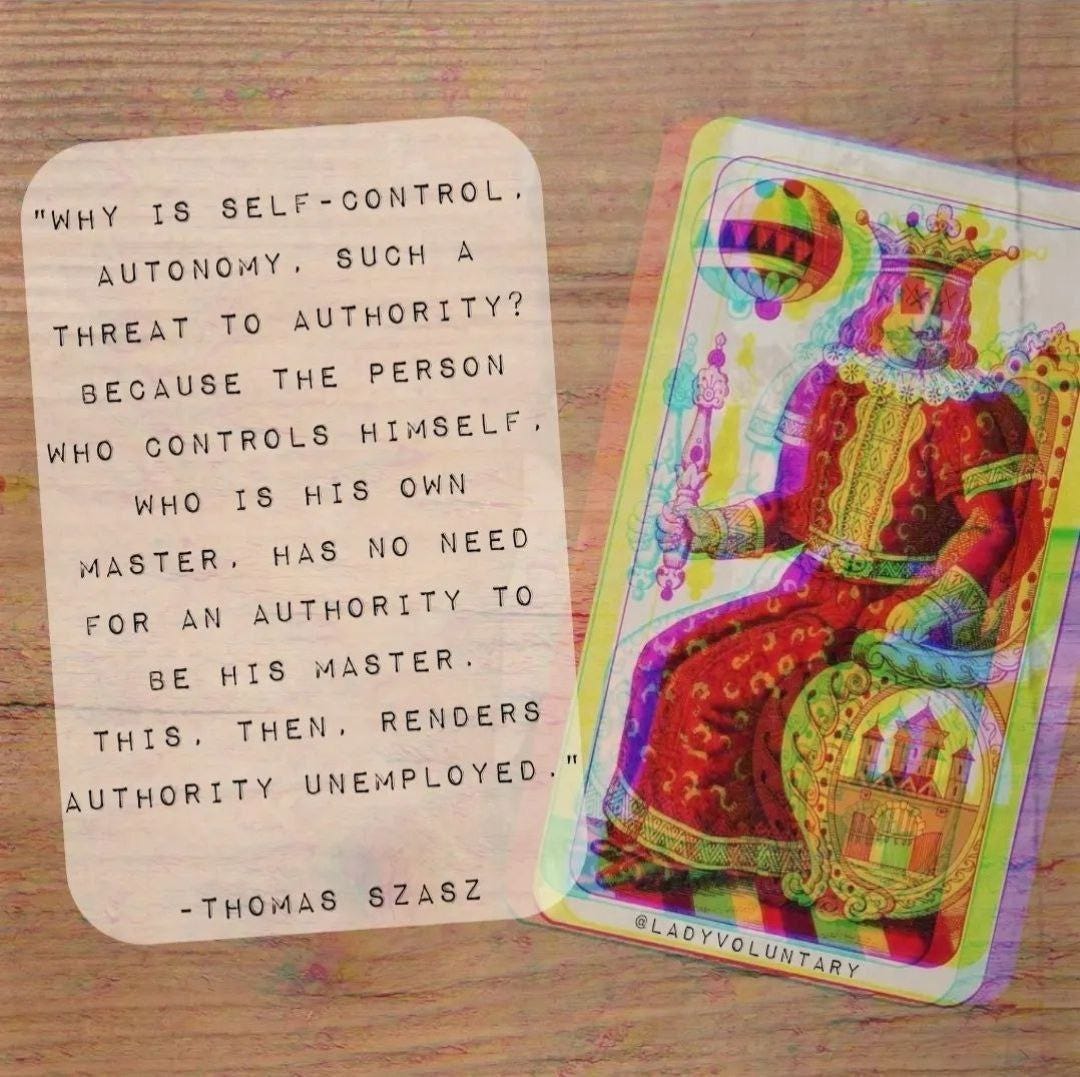 "WHY IS SELF-CONTROL,
AUTONOMY, SUCH A
THREAT TO AUTHORITY?
BECAUSE THE PERSON
WHO CONTROLS HIMSELF,
WHO IS HIS OWN
MASTER, HAS NO NEED
FOR AN AUTHORITY TO
BE HIS MASTER.
THIS, THEN, RENDERS
AUTHORITY UNEMPLOYED."
-THOMAS SZASZ
@LADYVOLUNTARY